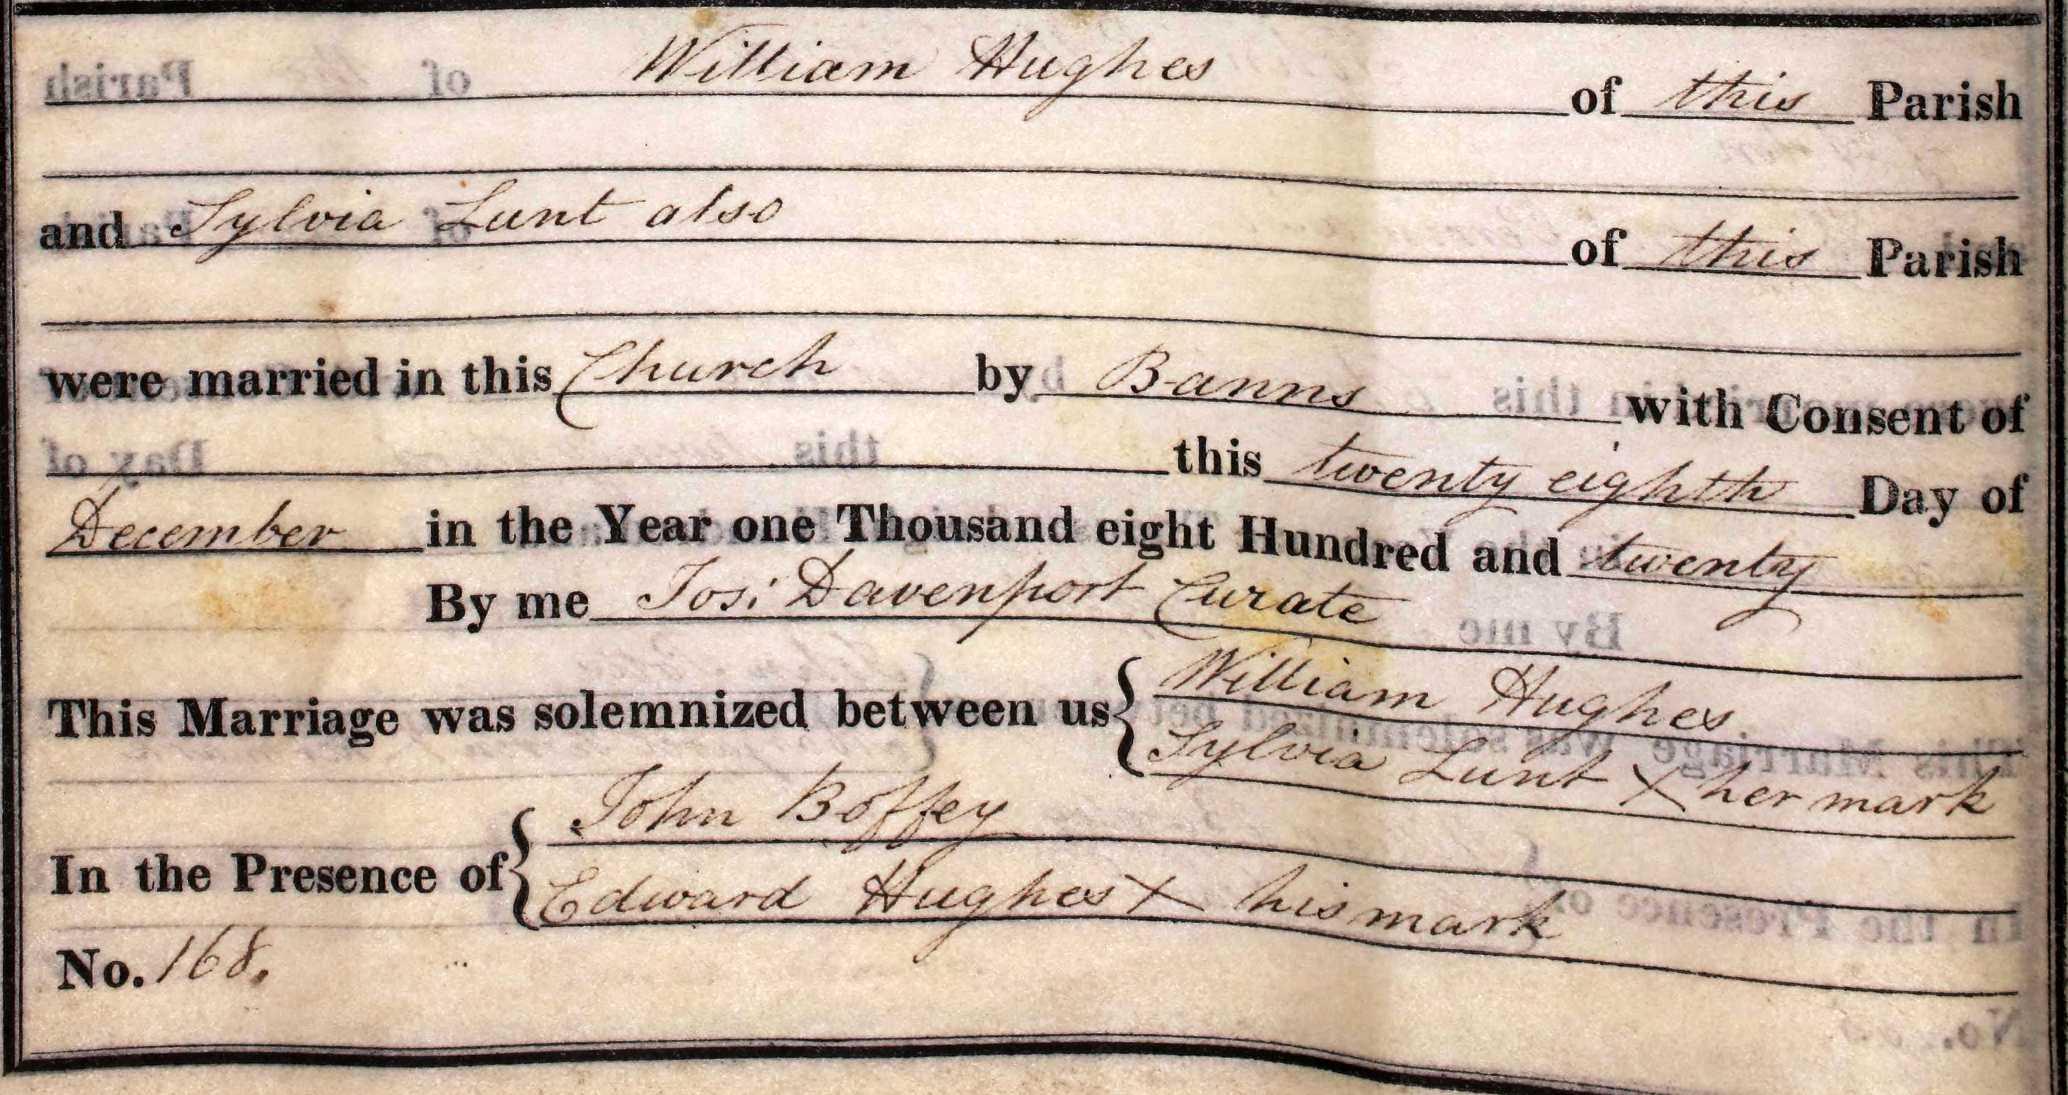 William Hughes of this Parish
and Sylvia Lunt also of this Parish
were married in this Church by Banns with Consent of
this twenty eighth Day of
December in the Year one Thousand eight Hundred and twenty
By me Jos: Davenport Curate
This Marriage was solemnized between us { William Hughes
Sylvia Lunt X her mark
In the Presence of { John Boffey
Edward Hughes X his mark
No. 168.